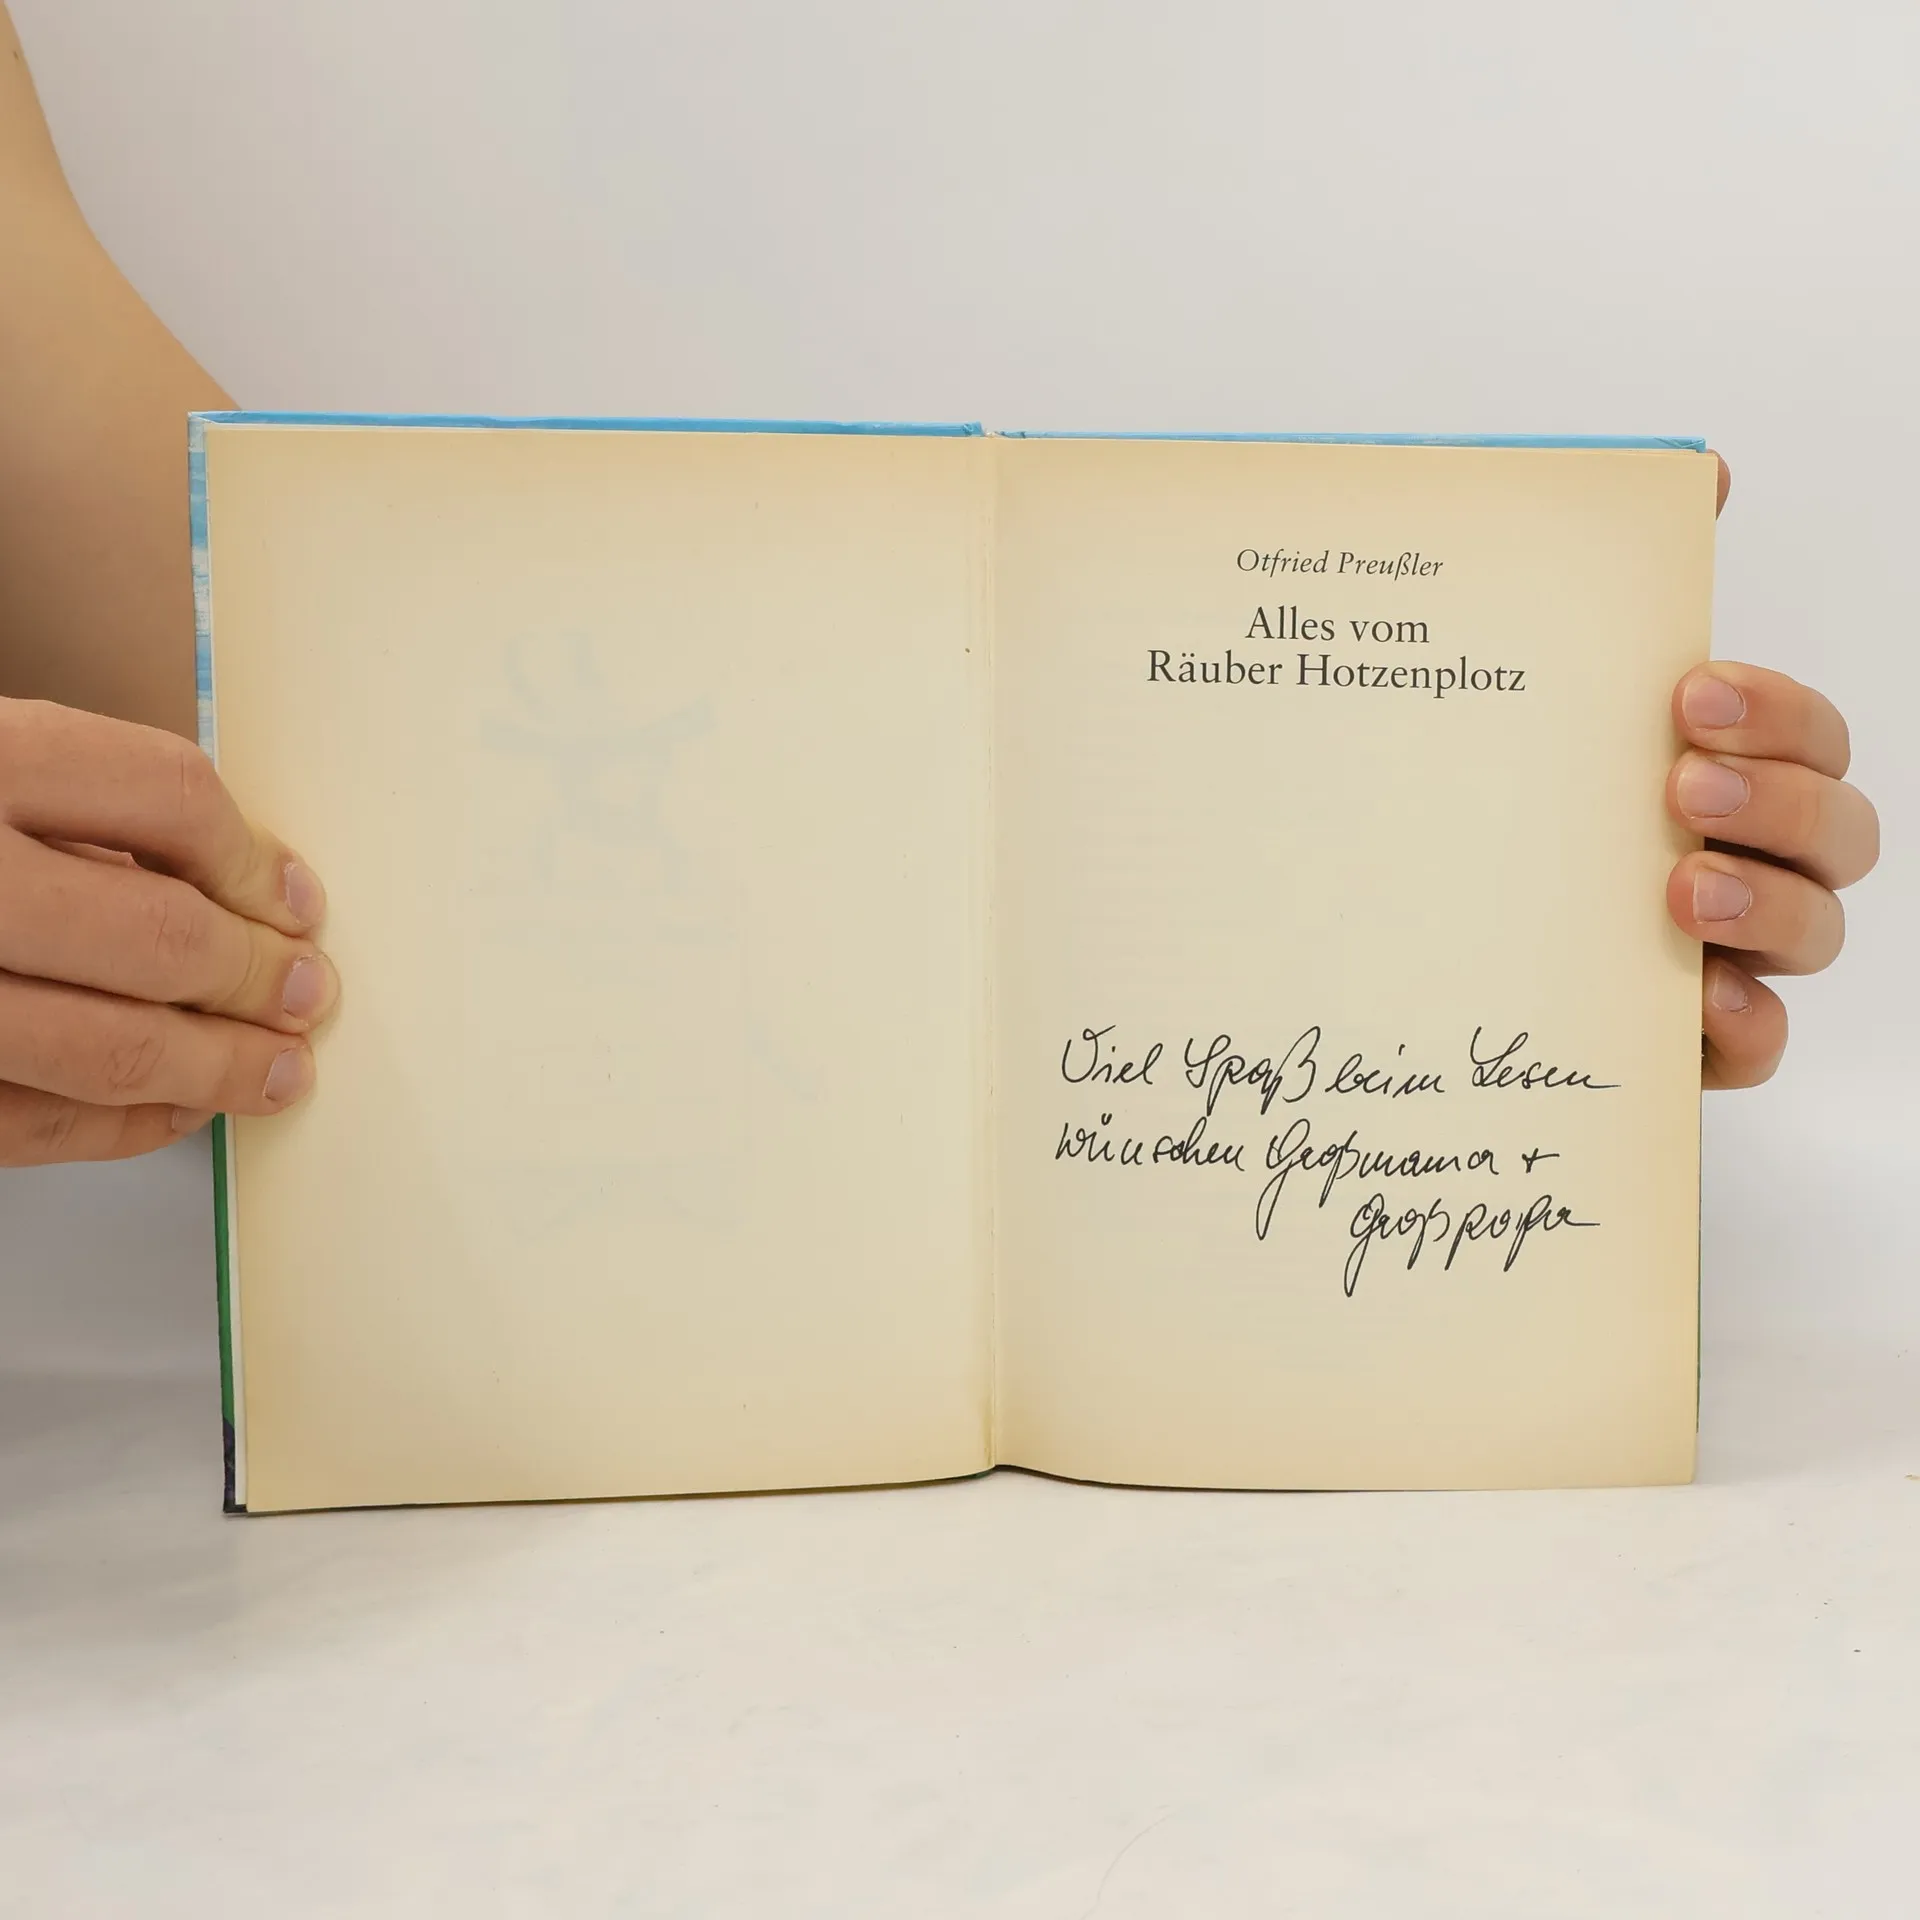 Otfried Preußler
Alles vom
Räuber Hotzenplotz
Viel Spaß beim Lesen
wünschen Großmama +
Großpapa